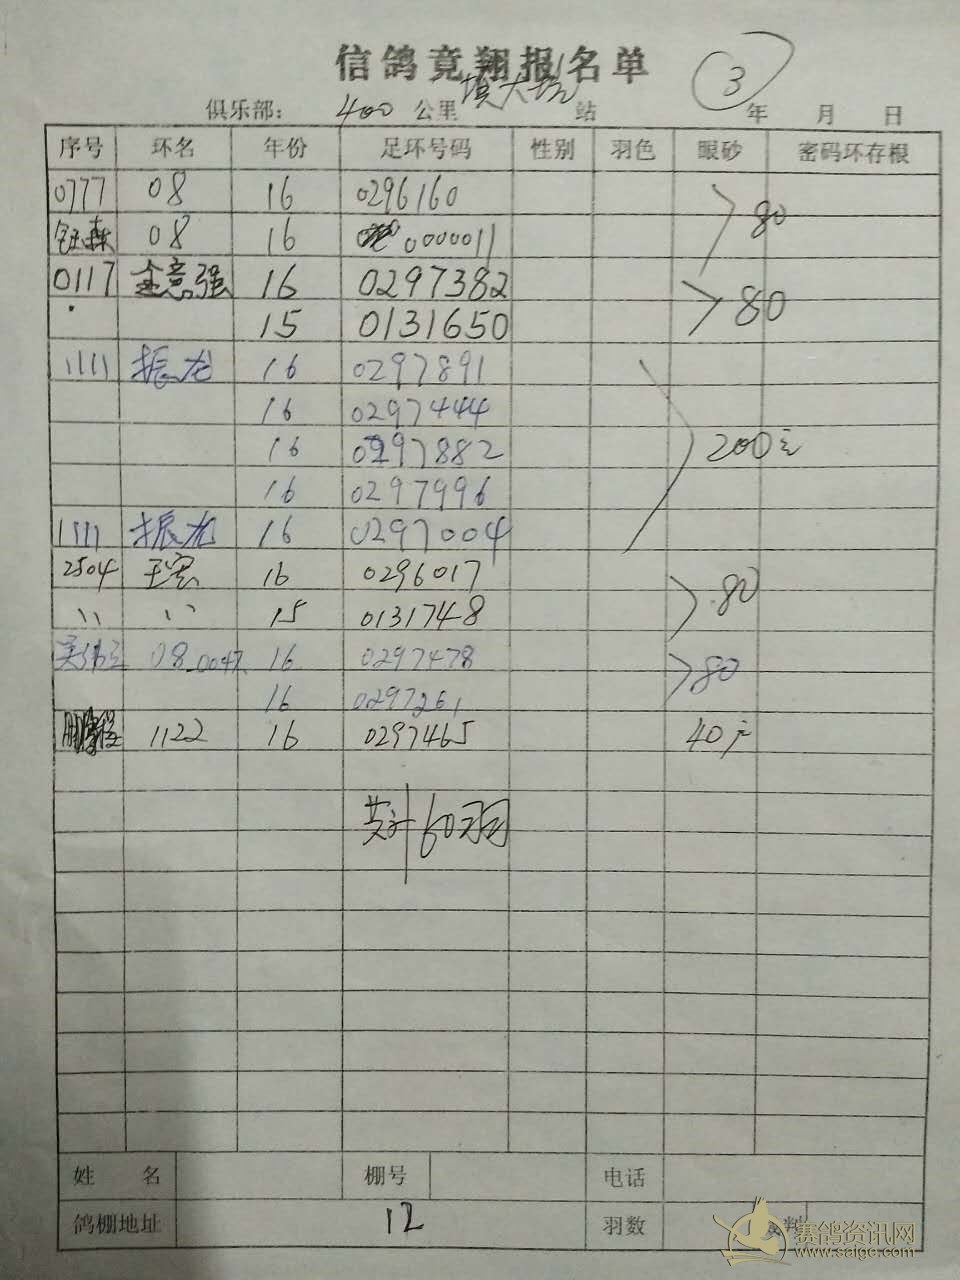 信鸽竟翔报名单 ③
俱乐部: 400 公里 站 年 月 日
序号 环名 年份 足环号码 性别 羽色 眼砂 密码环存根
0777 08 16 0296160
08 16 0000011
80
0117 金意强 16 0297382
15 0131650
80
1111 振龙 16 0297891
16 0297444
16 0297882
200元
16 0297996
1111 振龙 16 0297004
2504 王宏 16 0296017
〃 〃 15 0131748
80
08 0047 16 0297478
16 0297261
80
1122 16 0297465 40
共计 60羽
姓 名 棚号 电话
鸽棚地址 12 羽数
赛鸽资讯网
www.saige.com